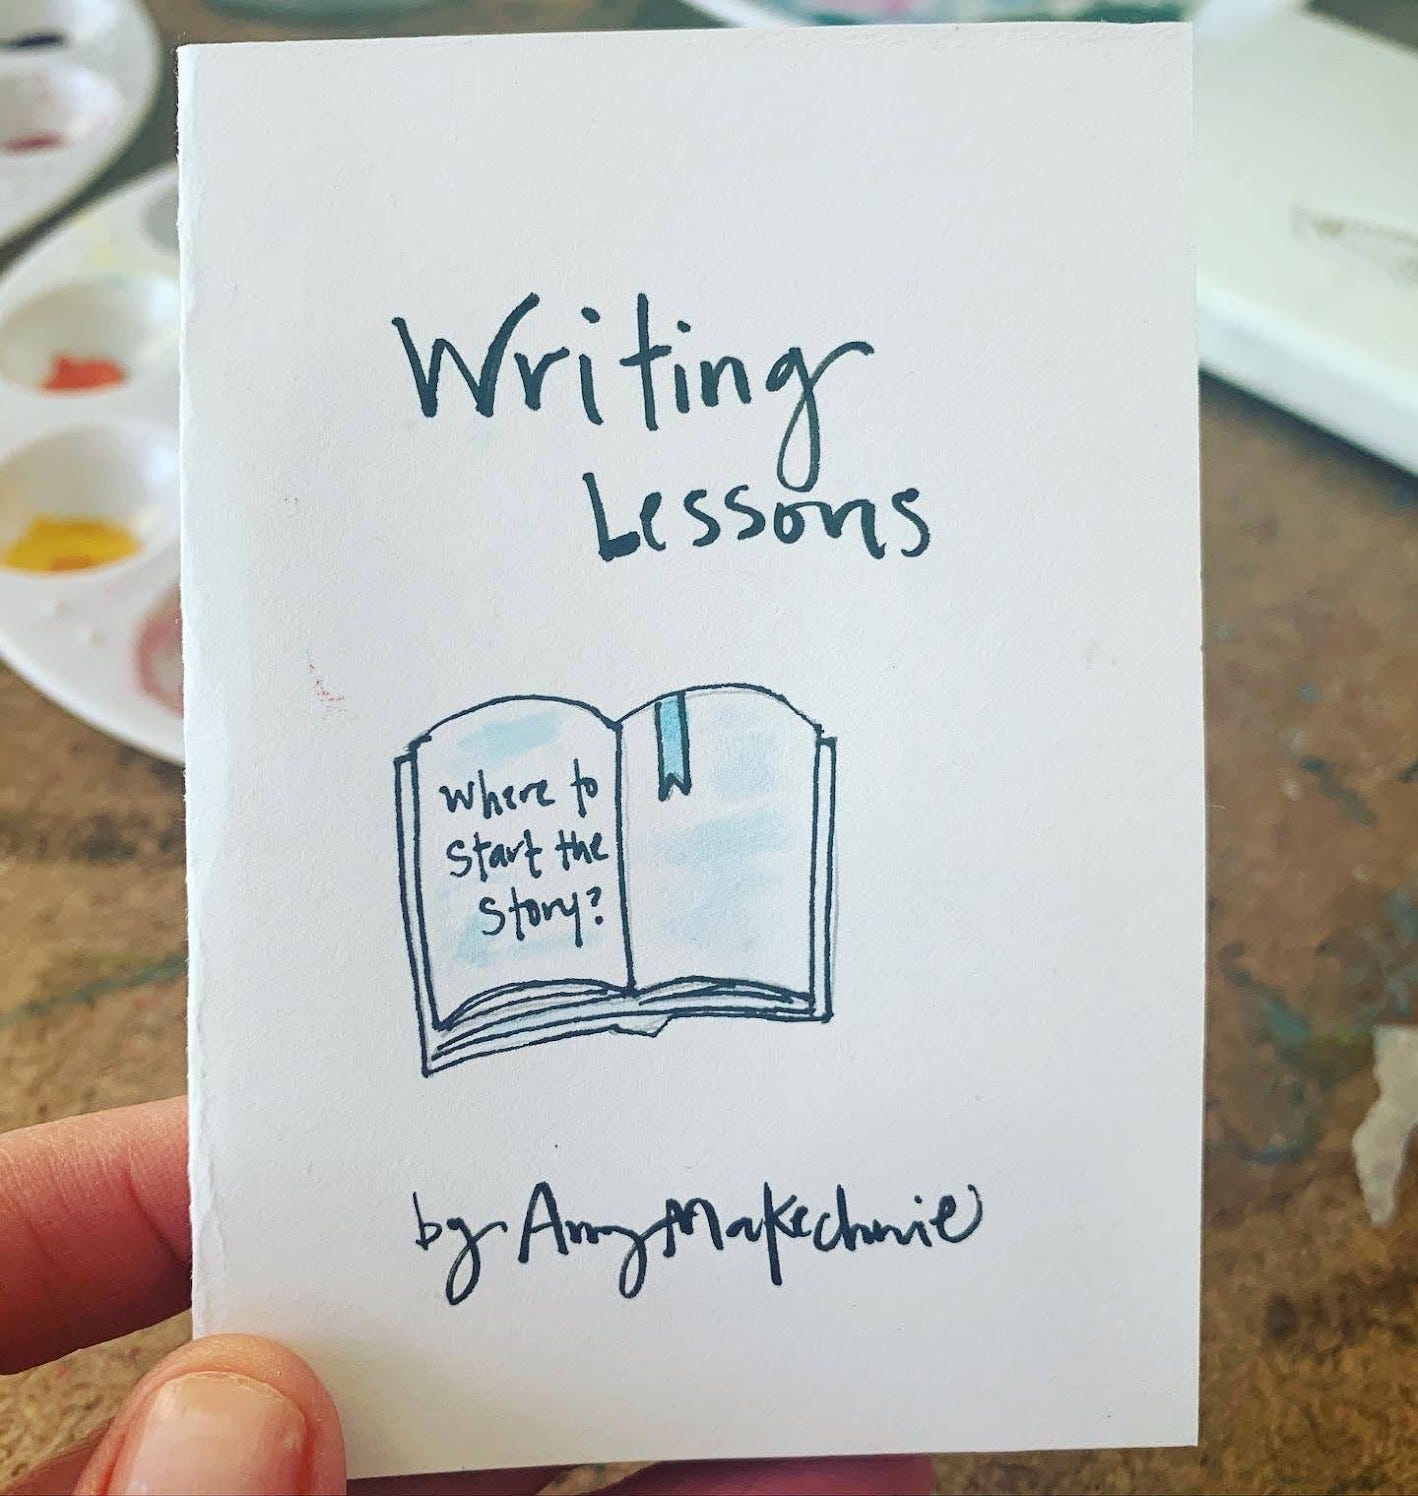 Writing
Lessons
Where to
start the
story?
by Amy Makechnie